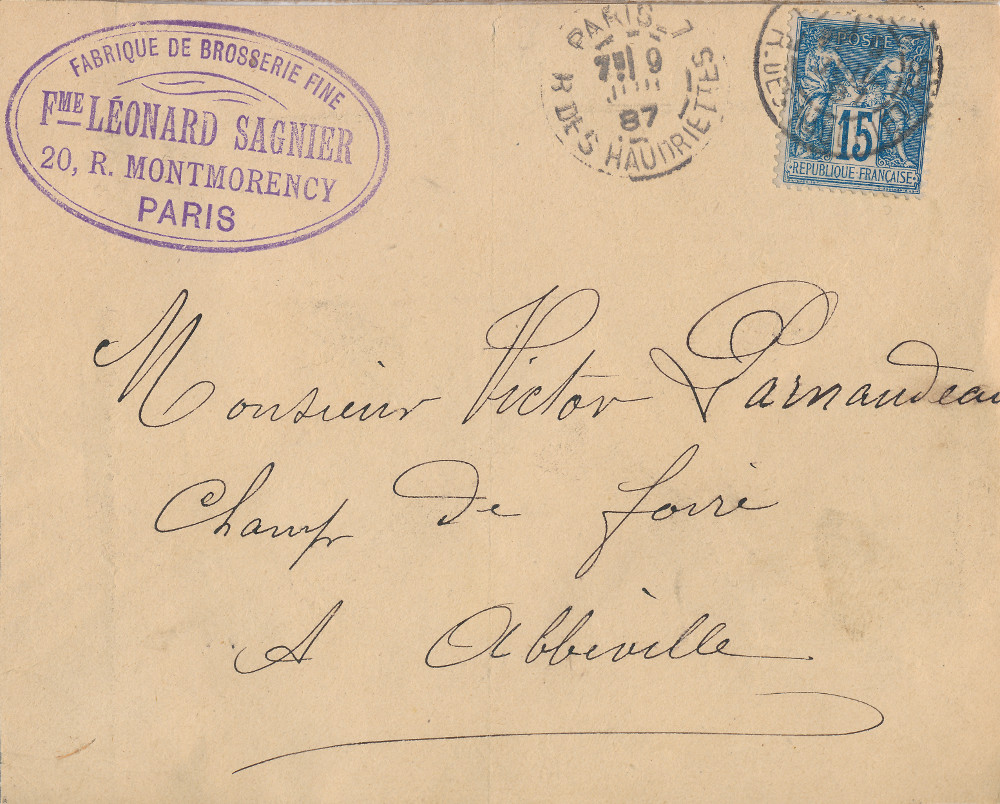 FABRIQUE DE BROSSERIE FINE
FME LÉONARD SAGNIER
20, R. MONTMORENCY
PARIS
PARIS
R. DES HAUDRIETTES
9
87
R. DES
POSTE
15
REPUBLIQUE FRANÇAISE
Monsieur Victor Parnaudeau
Champ de foire
A Abbeville